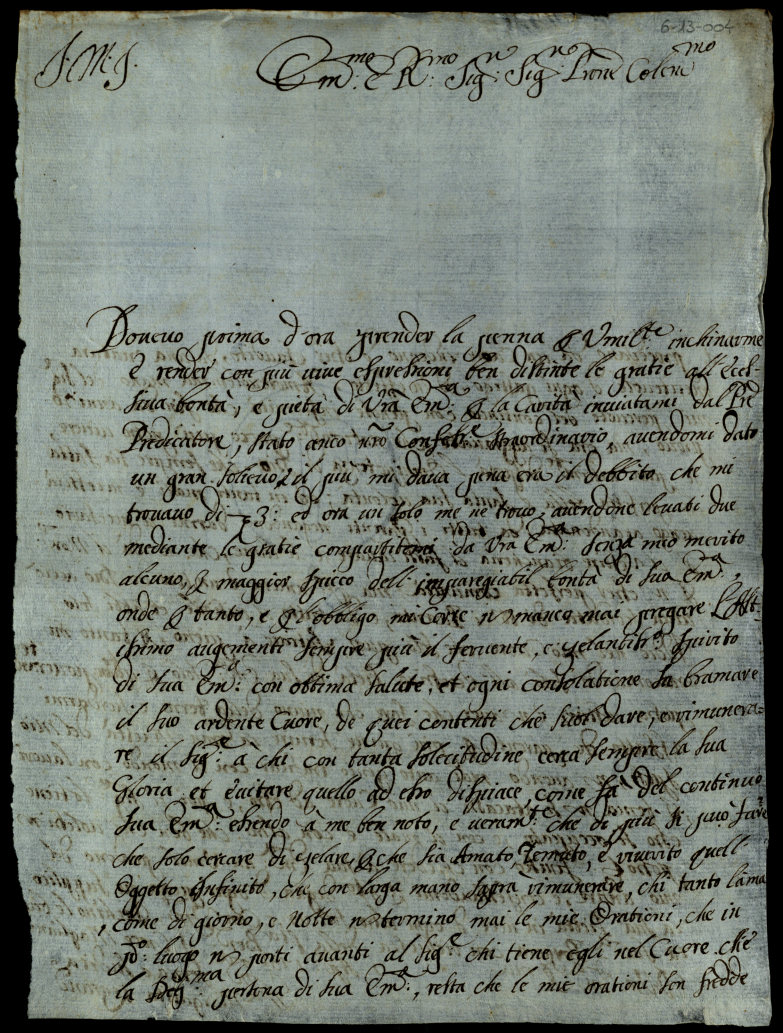 6-13-004
J: M: J.
Em.me e R.mo Sig.r Sig.r Prone Colen.mo
Dovevo prima d'ora prender la penna p Vmil.te inchinarme
e render con più vive espressioni ben distinte le gratie all'Eccel-
siva bontà, e pietà di Vrã Em.a p la Carità inviatami dal Prẽ
Predicatore, stato anco nrõ Confess.re straordinario, avendomi dato
un gran solievo, il più mi dava pena era il debbito che mi
trovavo di 3: ed ora un solo me ne trovo, avendone levati due
mediante le gratie compartitemi da Vrã Em.a: senza mio merito
alcuno, p maggior spicco dell'impareggiabil bontà di sua Em.a,
onde p tanto, e p l'obbligo mi corre n manco mai pregare L'Alt-
issimo augementi sempre più il fervente, e zelantiss.o spirito
di sua Em.a: con ottima salute, et ogni consolatione sa bramare
il suo ardente Cuore, de quei contenti che suol dare, e rimunera-
re il Sig.re à chi con tanta solecitudine cerca sempre la sua
Gloria et evitare quello ad esso dispiace, come fà del continuo
sua Em.a: essendo à me ben noto, e veram.te che di più si può fare
che solo cercare di zelare, p che sia Amato, Temuto, e riverito quell'
Oggetto Infinito, che con larga mano saprà rimunerare, chi tanto l'ama
, come di giorno, e Notte n termino mai le mie Orationi, che in
p.o: luogo n porti avanti al Sig.re chi tiene egli nel Cuore che
la Deg.ma: persona di sua Em.a:, resta che le mie orationi son fredde